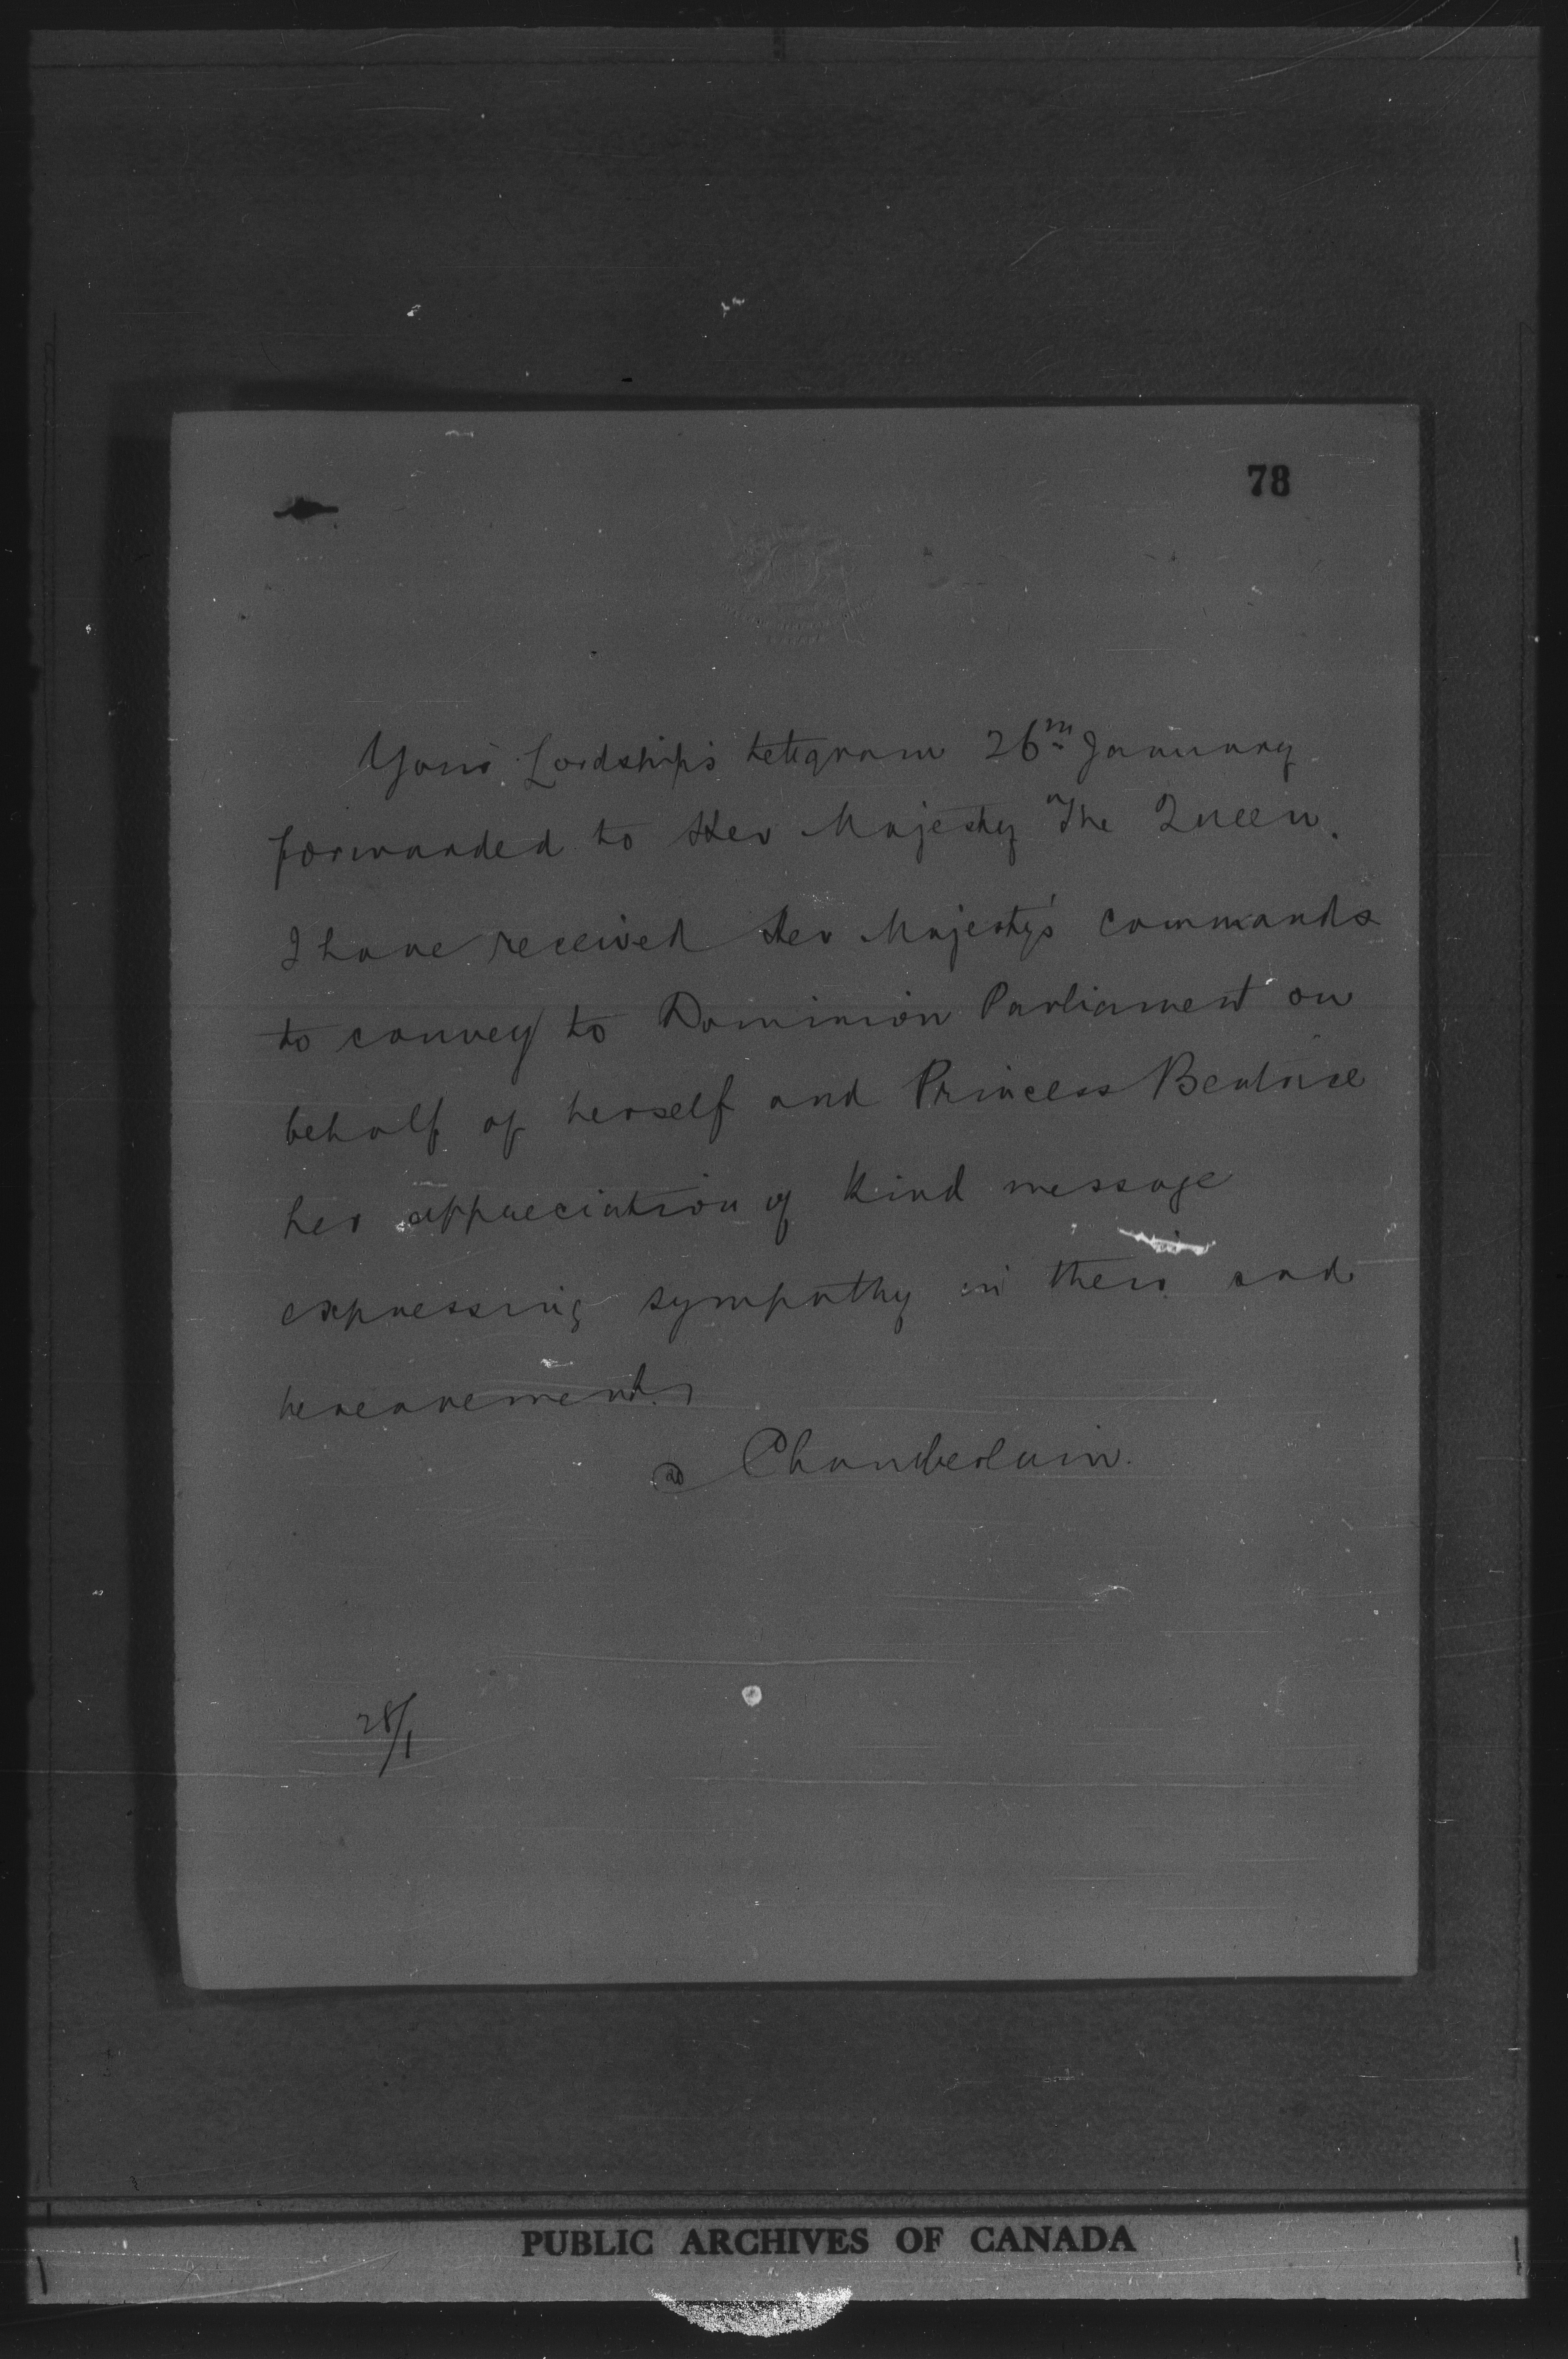 78
Your Lordship's telegram 26th January
forwarded to Her Majesty The Queen.
I have received Her Majesty's commands
to convey to Dominion Parliament on
behalf of herself and Princess Beatrice
her appreciation of kind message
expressing sympathy in their sad
bereavement.
Chamberlain.
28/1
PUBLIC ARCHIVES OF CANADA